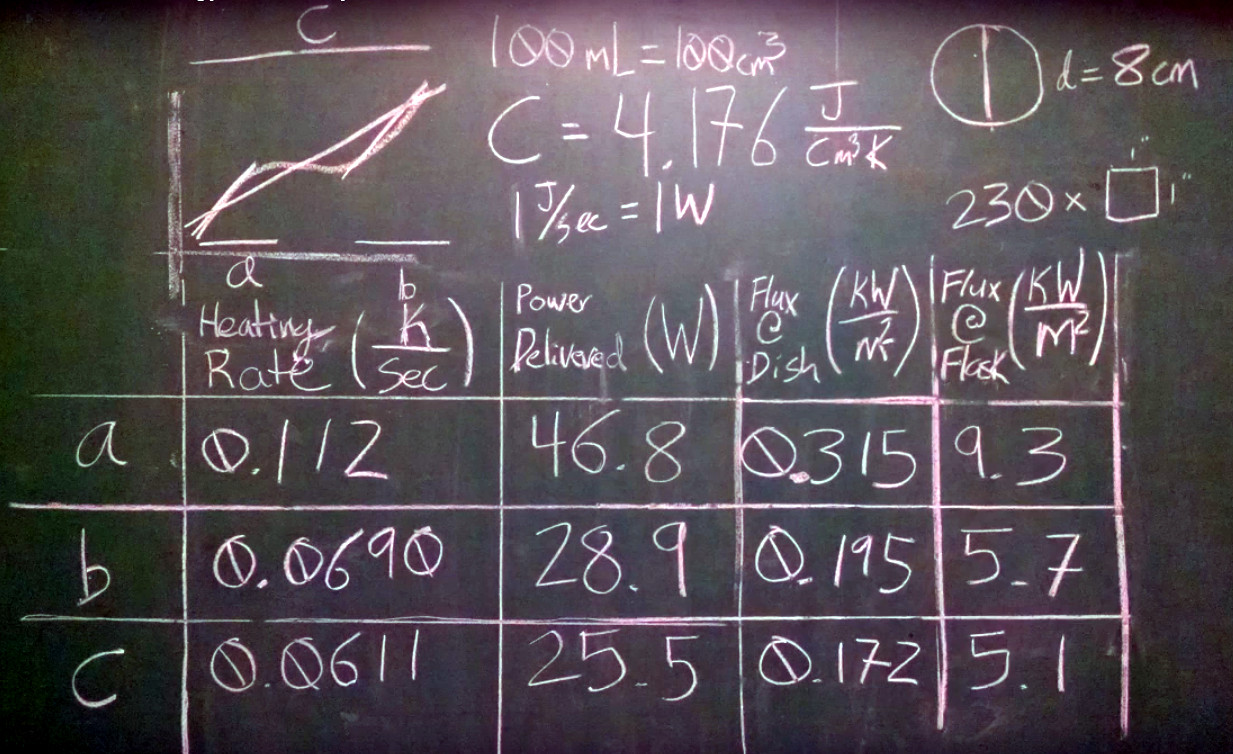 C
100 mL = 100 cm³
d = 8 cm
C = 4.176 J/cm³K
1 J/sec = 1 W
230 × 1" 1"
a
b
Heating Rate (K/sec)
Power Delivered (W)
Flux @ Dish (KW/m²)
Flux @ Flask (KW/m²)
a 0.112 46.8 0.315 9.3
b 0.0690 28.9 0.195 5.7
C 0.0611 25.5 0.172 5.1